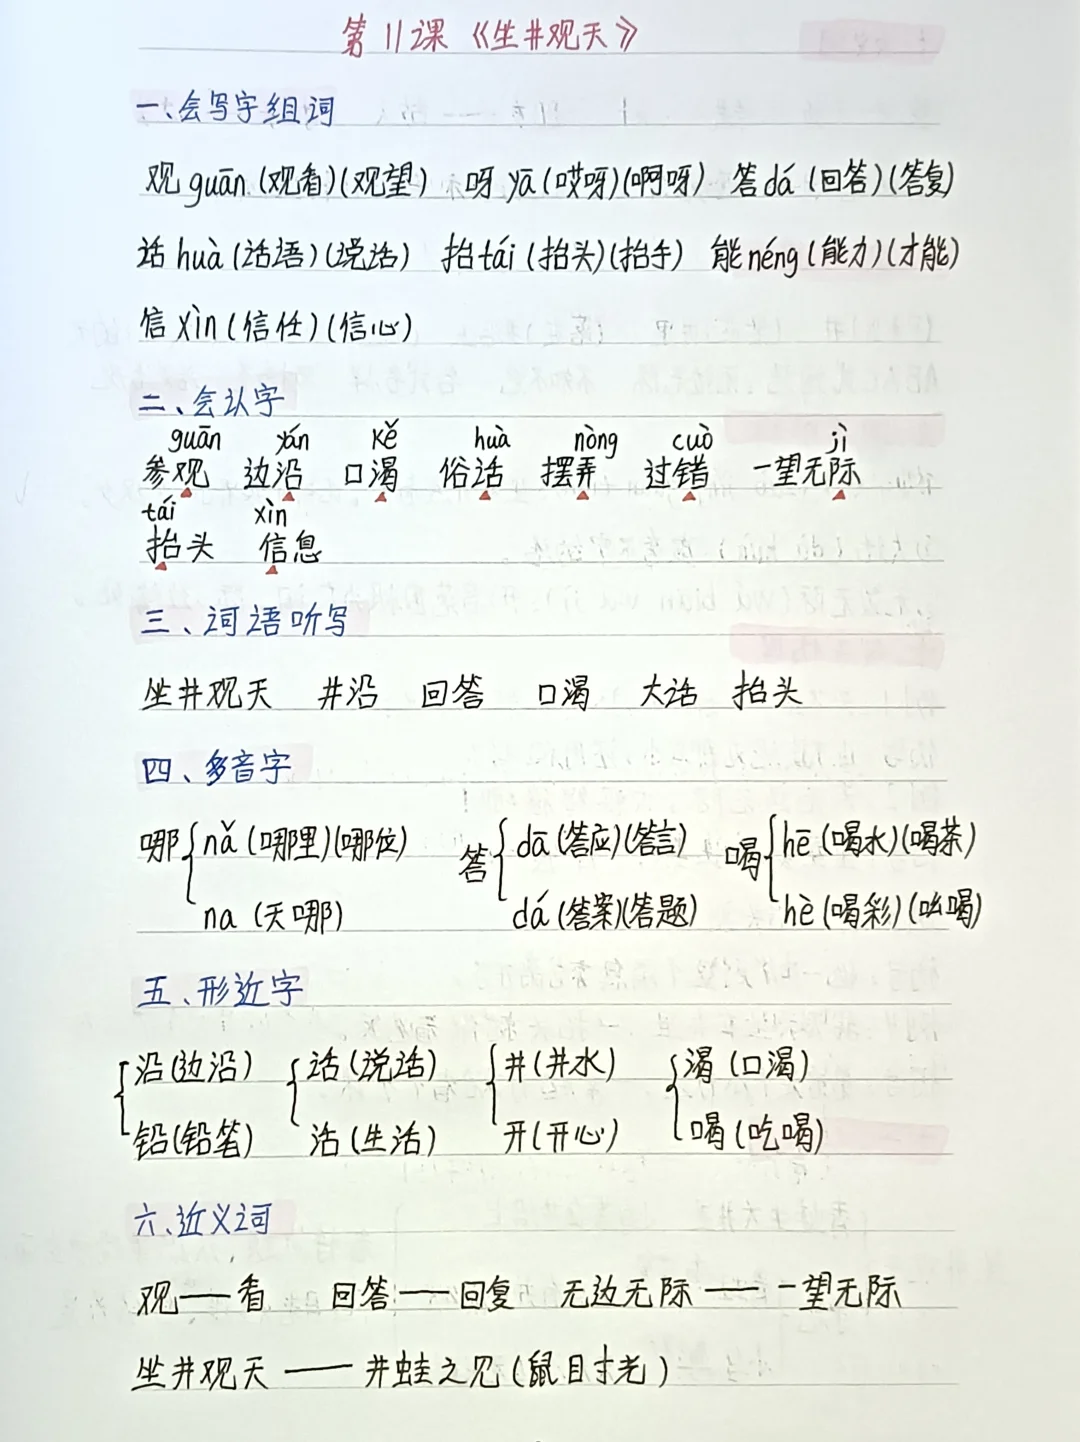 第11课《坐井观天》
一、会写字组词
观 guān (观看)(观望) 呀 yā (哎呀)(啊呀) 答 dá (回答)(答复)
话 huà (话语)(说话) 抬 tái (抬头)(抬手) 能 néng (能力)(才能)
信 xìn (信任)(信心)
二、会认字
guān yán kě huà nòng cuò jì
参观 边沿 口渴 俗话 摆弄 过错 一望无际
tái xìn
抬头 信息
三、词语听写
坐井观天 井沿 回答 口渴 大话 抬头
四、多音字
哪 答 喝
nǎ (哪里)(哪位) dā (答应)(答言) hē (喝水)(喝茶)
na (天哪) dá (答案)(答题) hè (喝彩)(吆喝)
五、形近字
沿(边沿) 话(说话) 井(井水) 渴(口渴)
铅(铅笔) 活(生活) 开(开心) 喝(吃喝)
六、近义词
观——看 回答——回复 无边无际——一望无际
坐井观天——井蛙之见(鼠目寸光)